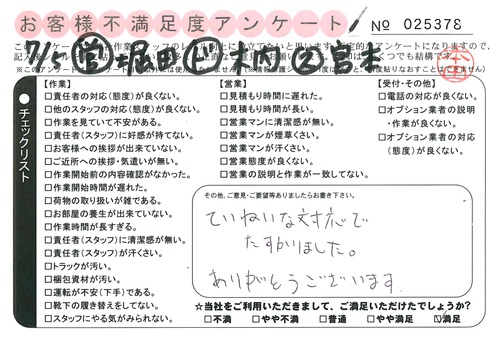 お客様不満足度アンケート
No 025378
7/5 営 堀田
宮本
チェックリスト
【作業】
□責任者の対応(態度)が良くない。
□他のスタッフの対応(態度)が良くない。
□作業を見ていて不安がある。
□責任者(スタッフ)に好感が持てない。
□お客様への挨拶が出来ていない。
□ご近所への挨拶・気遣いが無い。
□作業開始前の内容確認がなかった。
□作業開始時間が遅れた。
□荷物の取り扱いが雑である。
□お部屋の養生が出来ていない。
□作業時間が長すぎる。
□責任者(スタッフ)に清潔感が無い。
□責任者(スタッフ)が汗くさい。
□トラックが汚い。
□梱包資材が汚い。
□運転が不安(下手)である。
□靴下の履き替えをしてない。
□スタッフにやる気がみられない。
【営業】
□見積もり時間に遅れた。
□見積もり時間が長い。
□営業マンに清潔感が無い。
□営業マンが煙草くさい。
□営業マンが汗くさい。
□営業態度が良くない。
□営業の説明と作業が一致してない。
【受付・その他】
□電話の対応が良くない。
□オプション業者の説明
・作業が良くない。
□オプション業者の対応
(態度)が良くない。
その他、ご意見・ご要望等ありましたらお書き下さい。
ていねいな対応で
たすかりました。
ありがとうございます
★当社をご利用いただきまして、ご満足いただけたでしょうか?
□不満 □やや不満 □普通 □やや満足 ☑満足